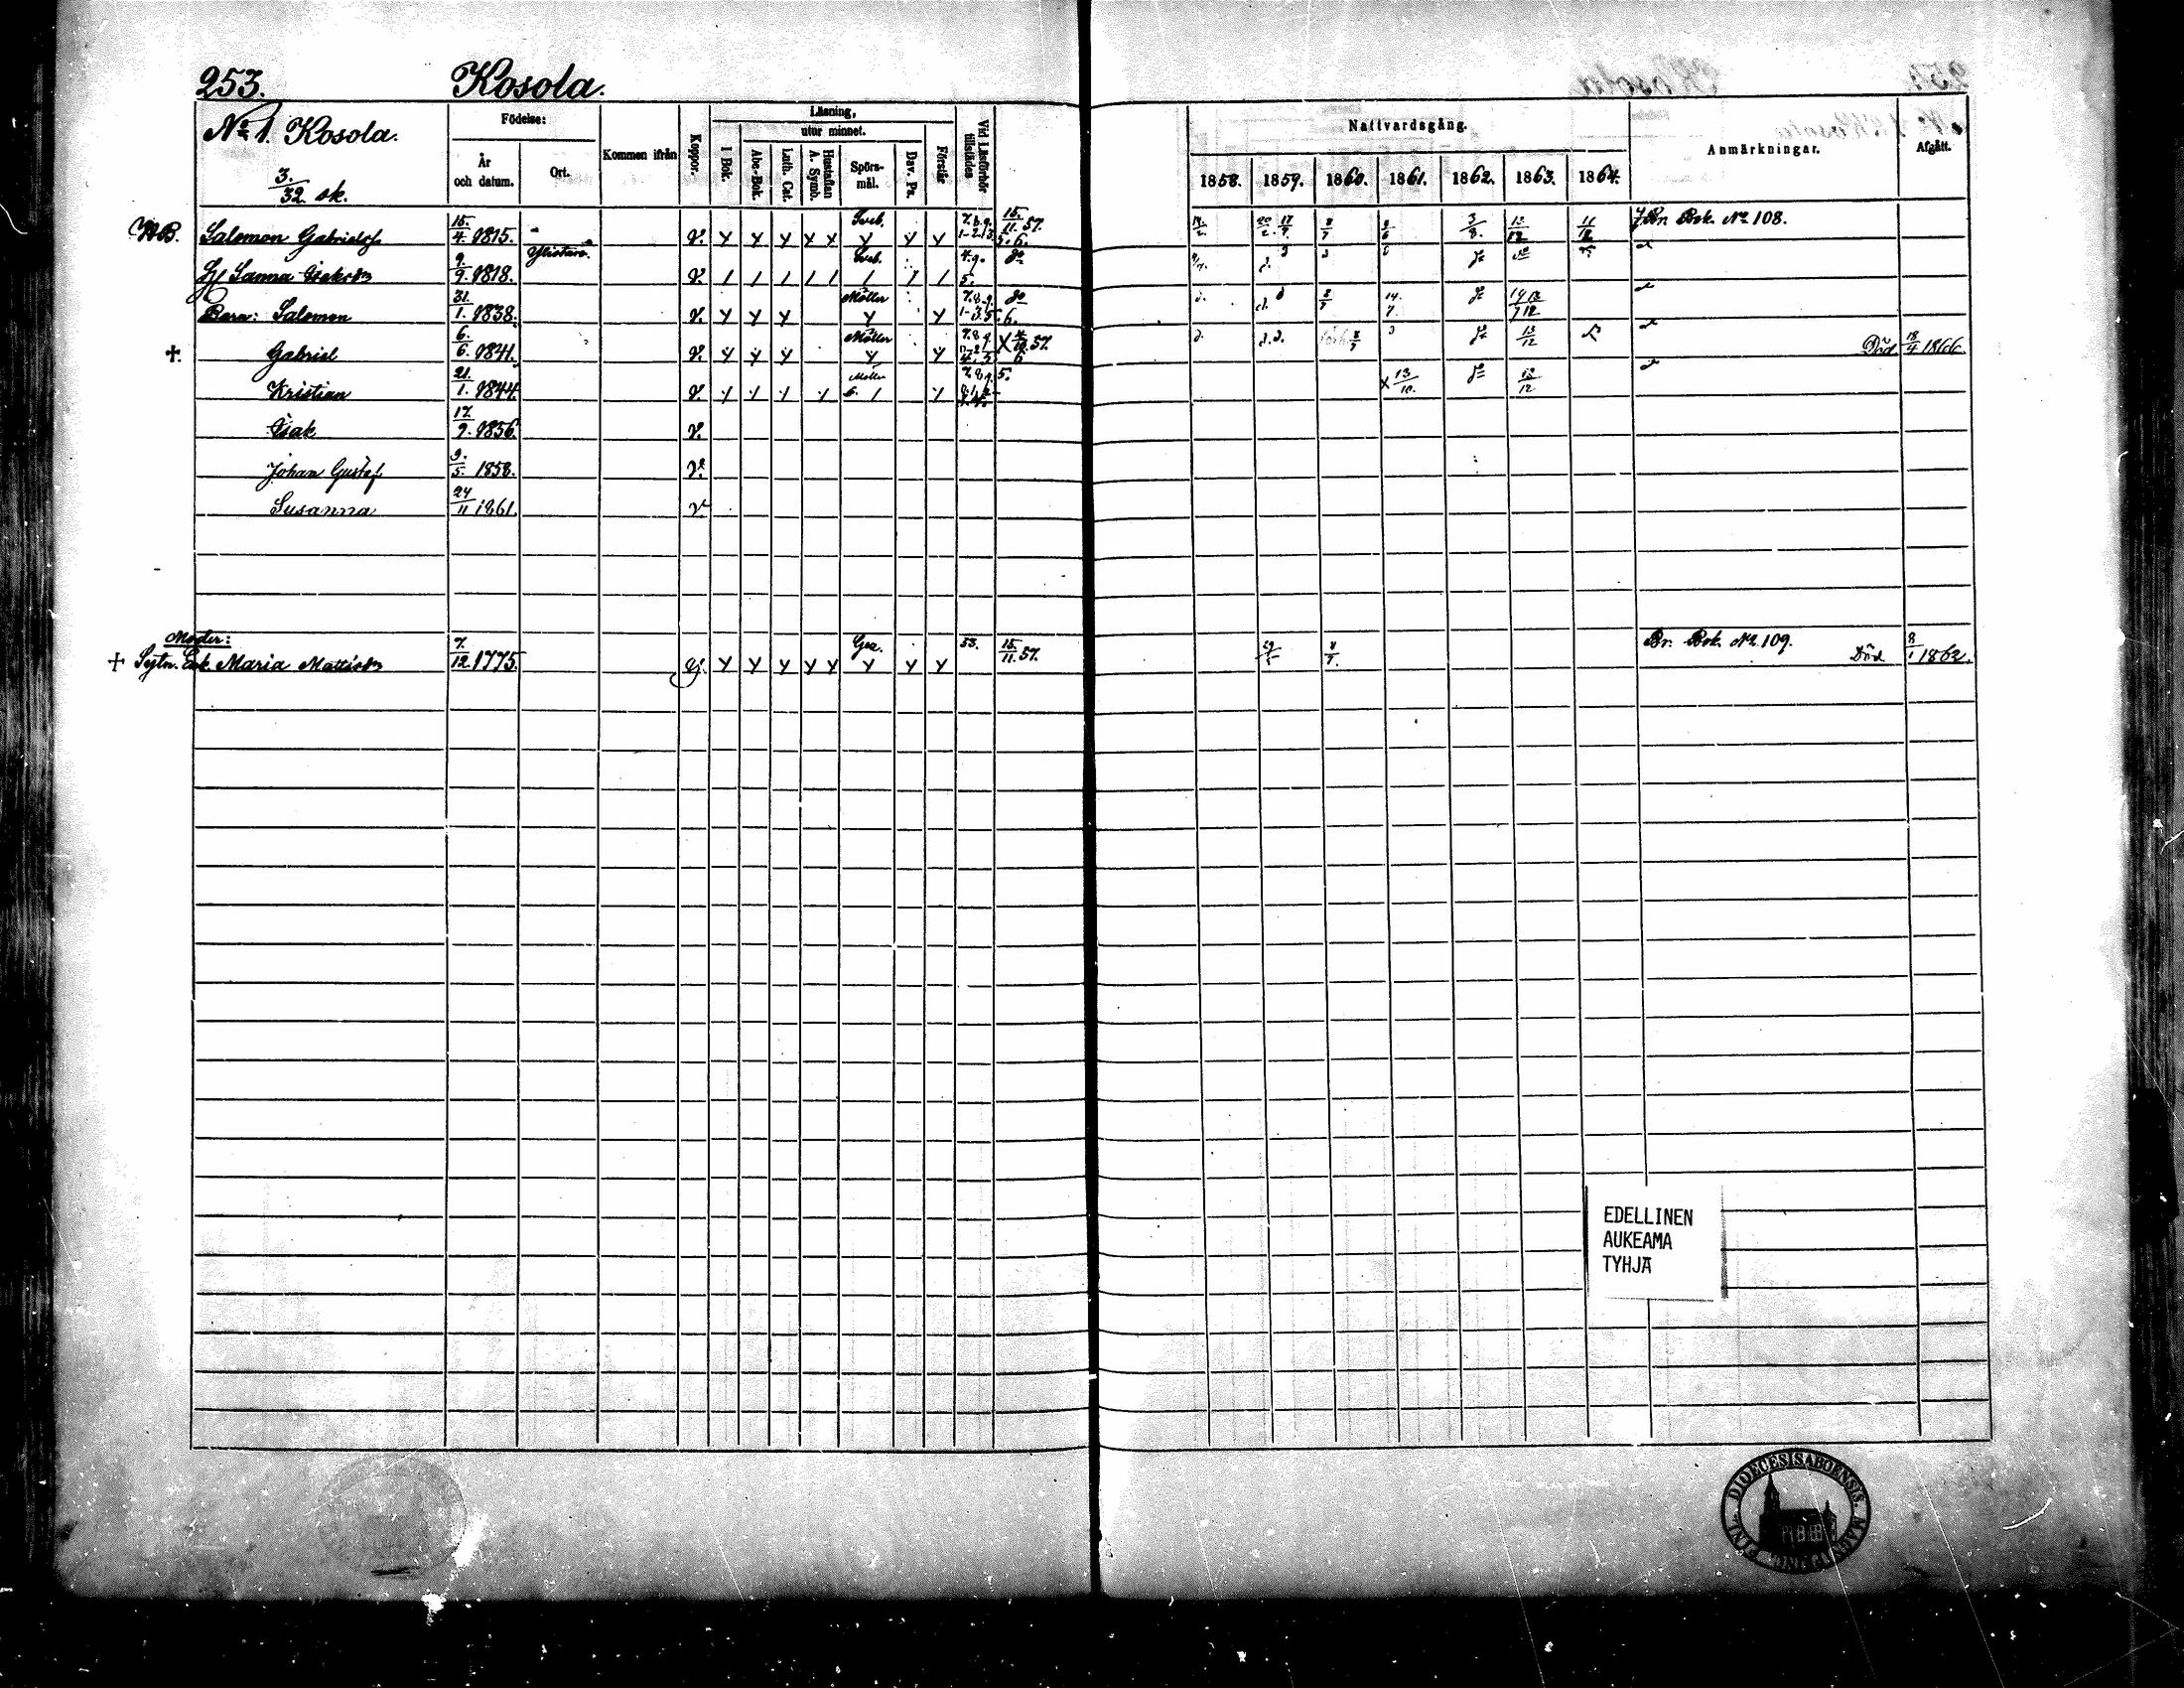 253. Kosola.
Nº 1. Kosola.
3./32. sk.
Födelse:
År och datum.
Ort.
Kommen ifrån
Koppor.
Läsning,
utur minnet.
I Bok.
Abc-Bok.
Luth. Cat.
Hustaflan A. Symb.
Spörsmål.
Dav. Ps.
Förstår
Vid Läsförhör tillstädes
Nattvardsgång.
1858. 1859. 1860. 1861. 1862. 1863. 1864.
Anmärkningar.
Afgått.
Salomon Gabrielsf 15./4. 1815. v. y y y y y Sveb. y y y 15./11. 57. 3/8. 13/12 11/12 Bok. Nº 108.
Sanna 9./9. 1818. Ylistaro. v. / / / / / Sveb. / / / 5. do
Barn: Salomon 31./1. 1838. v. y y y Möller y y 6. do 8/7 14./7.
+. Gabriel 6./6. 1841. v. y y y Möller y y 57. 8/7 13/12 Död 18/4 1866
Kristian 21./1. 1844. v. Möller 5. x 13/10. 13/12
Isak 17./9. 1856. v.
Johan Gustaf 9./5. 1858. v.
Susanna 24/11 1861. v
Moder:
+ Sytn. Enk. Maria Mattisdr 7./12 1775. y y y y y y y y 53. 15./11. 57. Br. Bok. Nº 109. Död 8/1 1862.
EDELLINEN
AUKEAMA
TYHJÄ
DIOECESIS ABOENSIS.